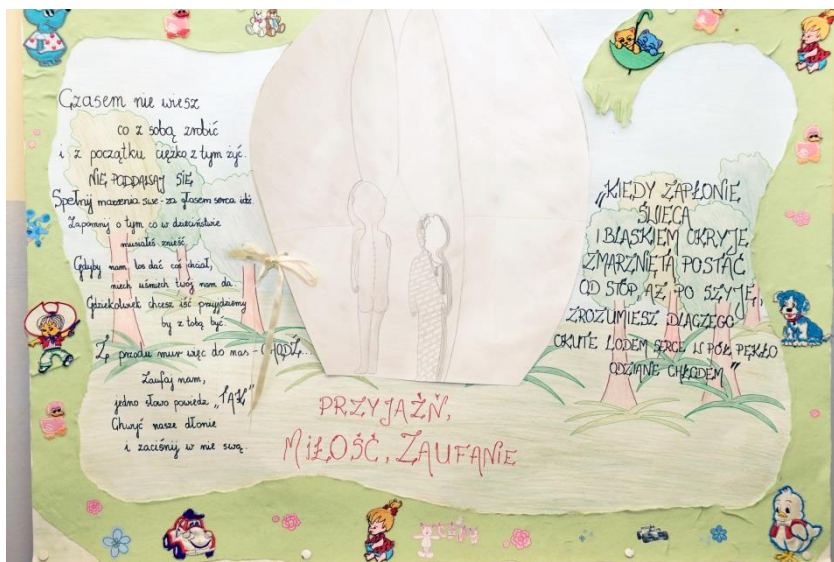 Czasem nie wiesz
co z sobą zrobić
i z początku ciężko z tym żyć.
NIE PODDAWAJ SIĘ
Spełnij marzenia swe - za głosem serca idź.
Zapomnij o tym co w dzieciństwie
musiałeś znieść.
Gdyby nam los dać coś chciał,
niech uśmiech twój nam da.
Gdziekolwiek chcesz iść przyjdziemy
by z tobą być.
Z przodu mur więc do nas - CHODŹ...
Zaufaj nam,
jedno słowo powiedz „TAK"
Chwyć nasze dłonie
i zaciśnij w nie swą.
PRZYJAŹŃ,
MIŁOŚĆ, ZAUFANIE
„KIEDY ZAPŁONIE
ŚWIECA
I BLASKIEM OKRYJE
ZMARZNIĘTĄ POSTAĆ
OD STÓP, AŻ PO SZYJĘ,
ZROZUMIESZ DLACZEGO
OKUTE LODEM SERCE W PÓŁ PĘKŁO
ODZIANE CHŁODEM"